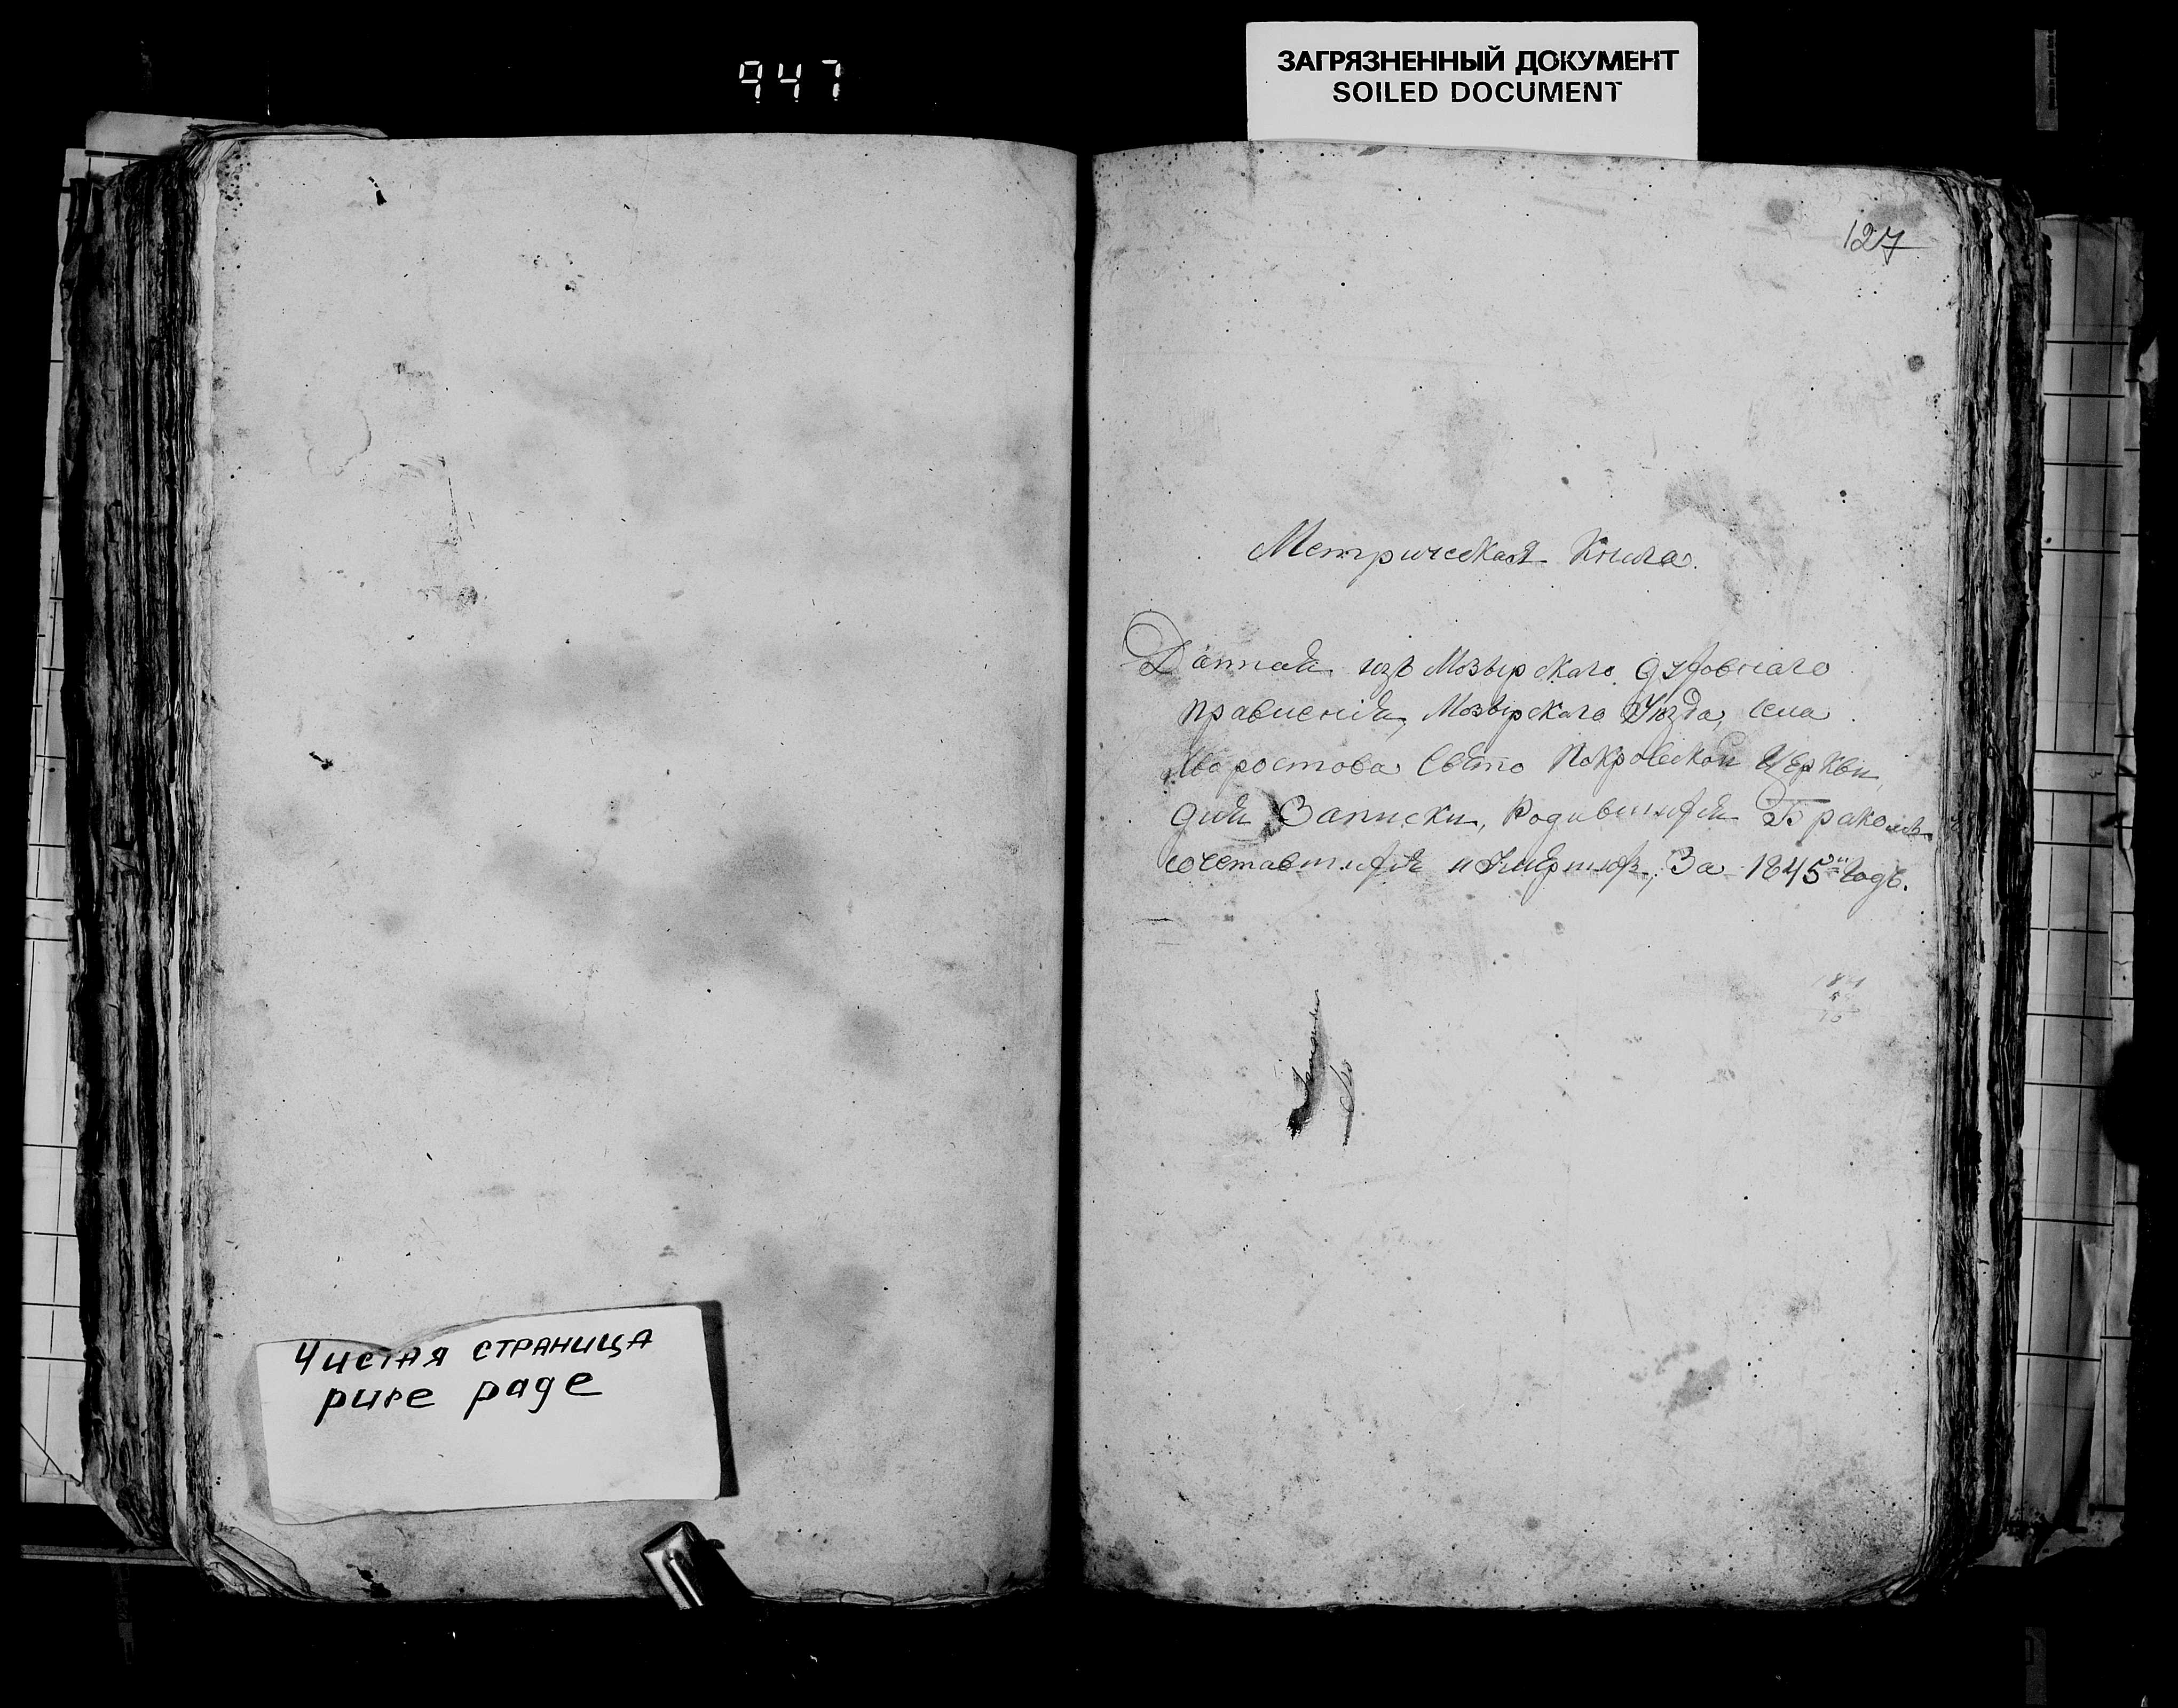 947
ЗАГРЯЗНЕННЫЙ ДОКУМЕНТ
SOILED DOCUMENT
127
Метрическая Книга.
Данная изъ Мозырскаго духовнаго
правленія, Мозырскаго Уѣзда, села
Хворостова Свято Покровской Церкви
для Записки, Родившихся Бракомъ
сочетавшихся и Умершихъ, За 1845й Годъ.
Чистая страница
pure page